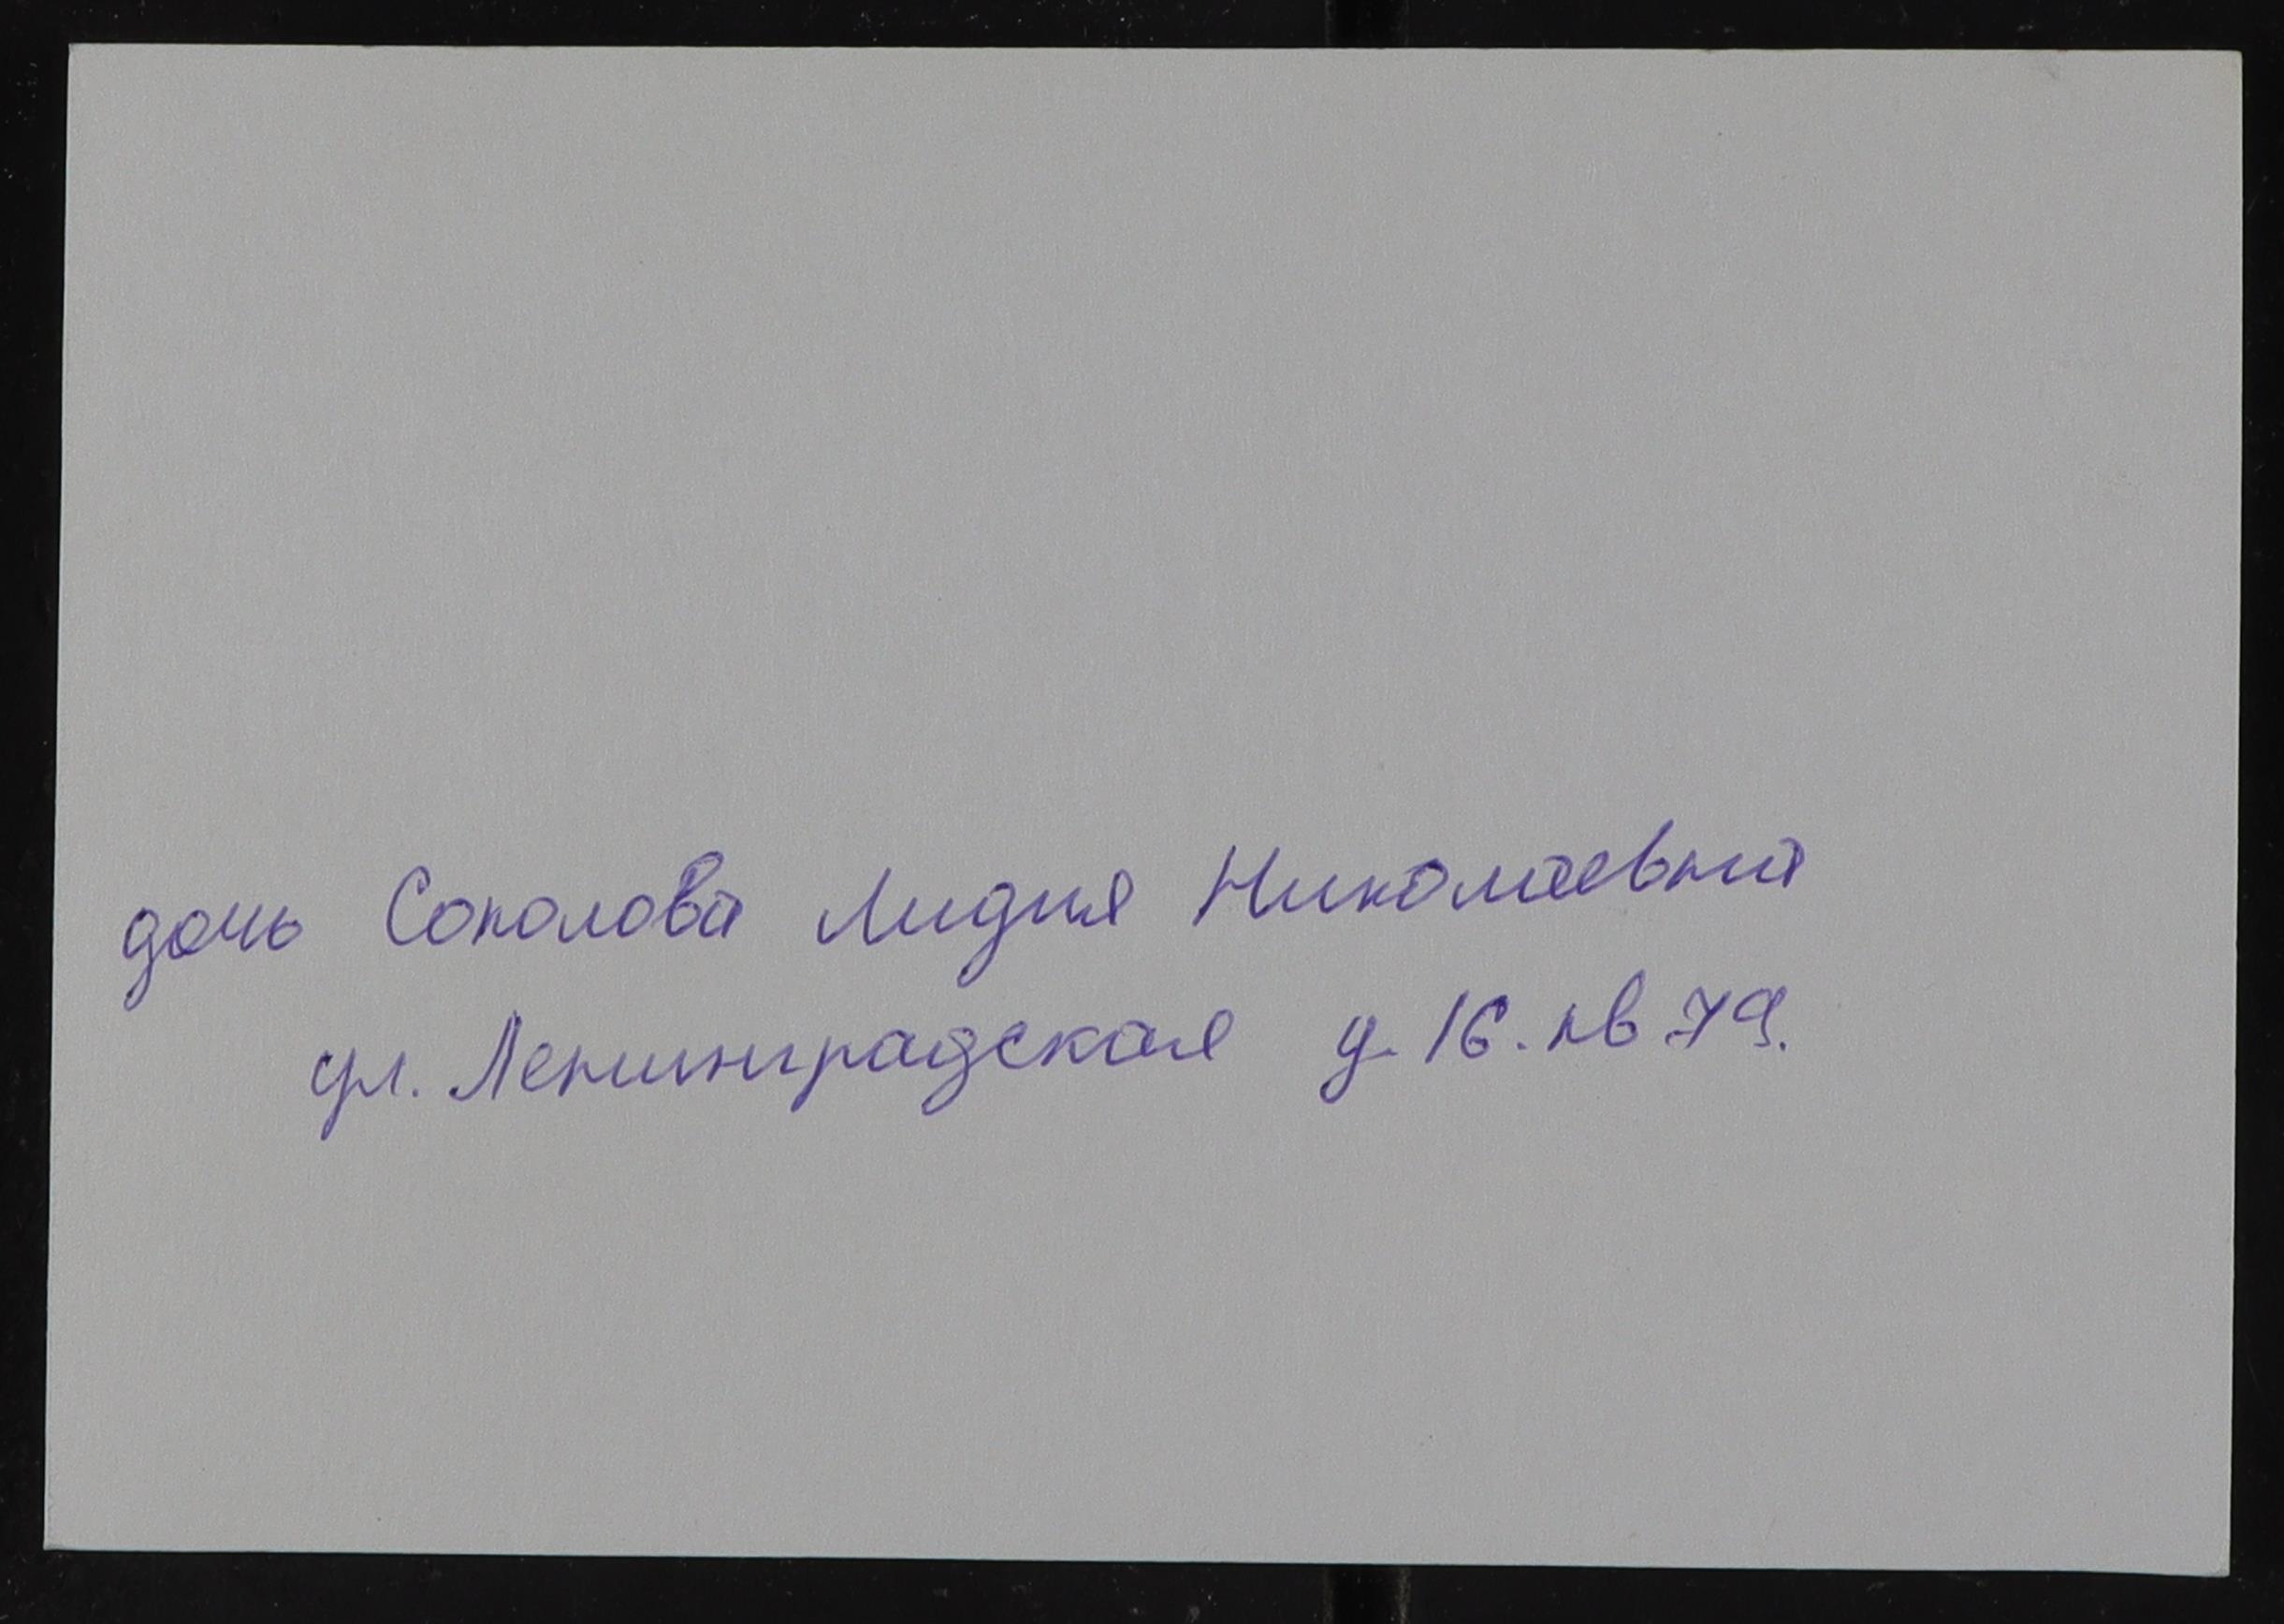 дочь Соколова Лидия Николаевна
ул. Ленинградская д. 16. кв 79.